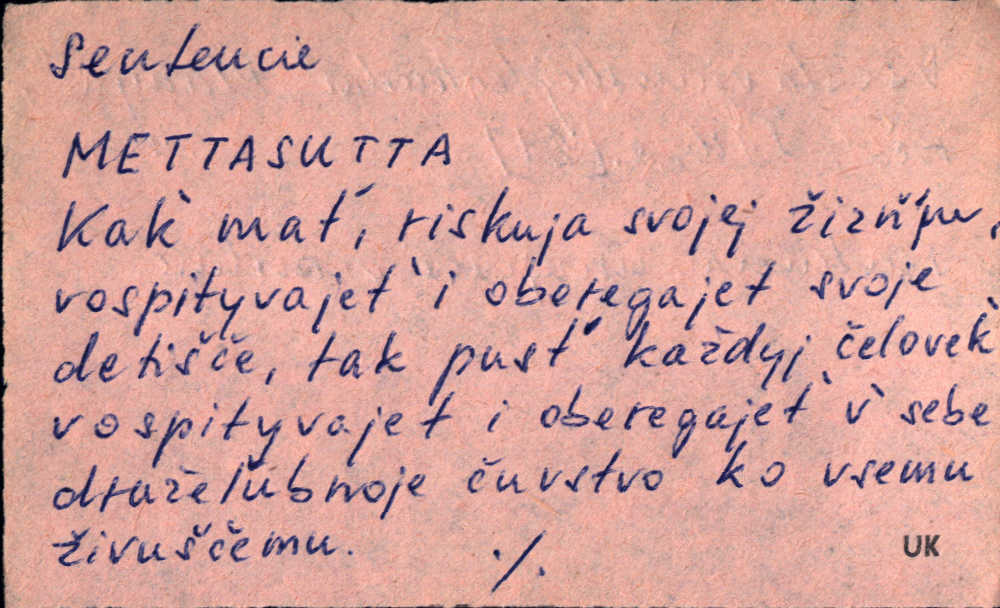 Sentencie
METTASUTTA
Kak mať, riskuja svojej žizňju,
vospityvajet i oberegajet svoje
detišče, tak pusť každyj čelovek
vospityvajet i oberegajet v sebe
druželubnoje čuvstvo ko vsemu
živuščemu. ./.
UK